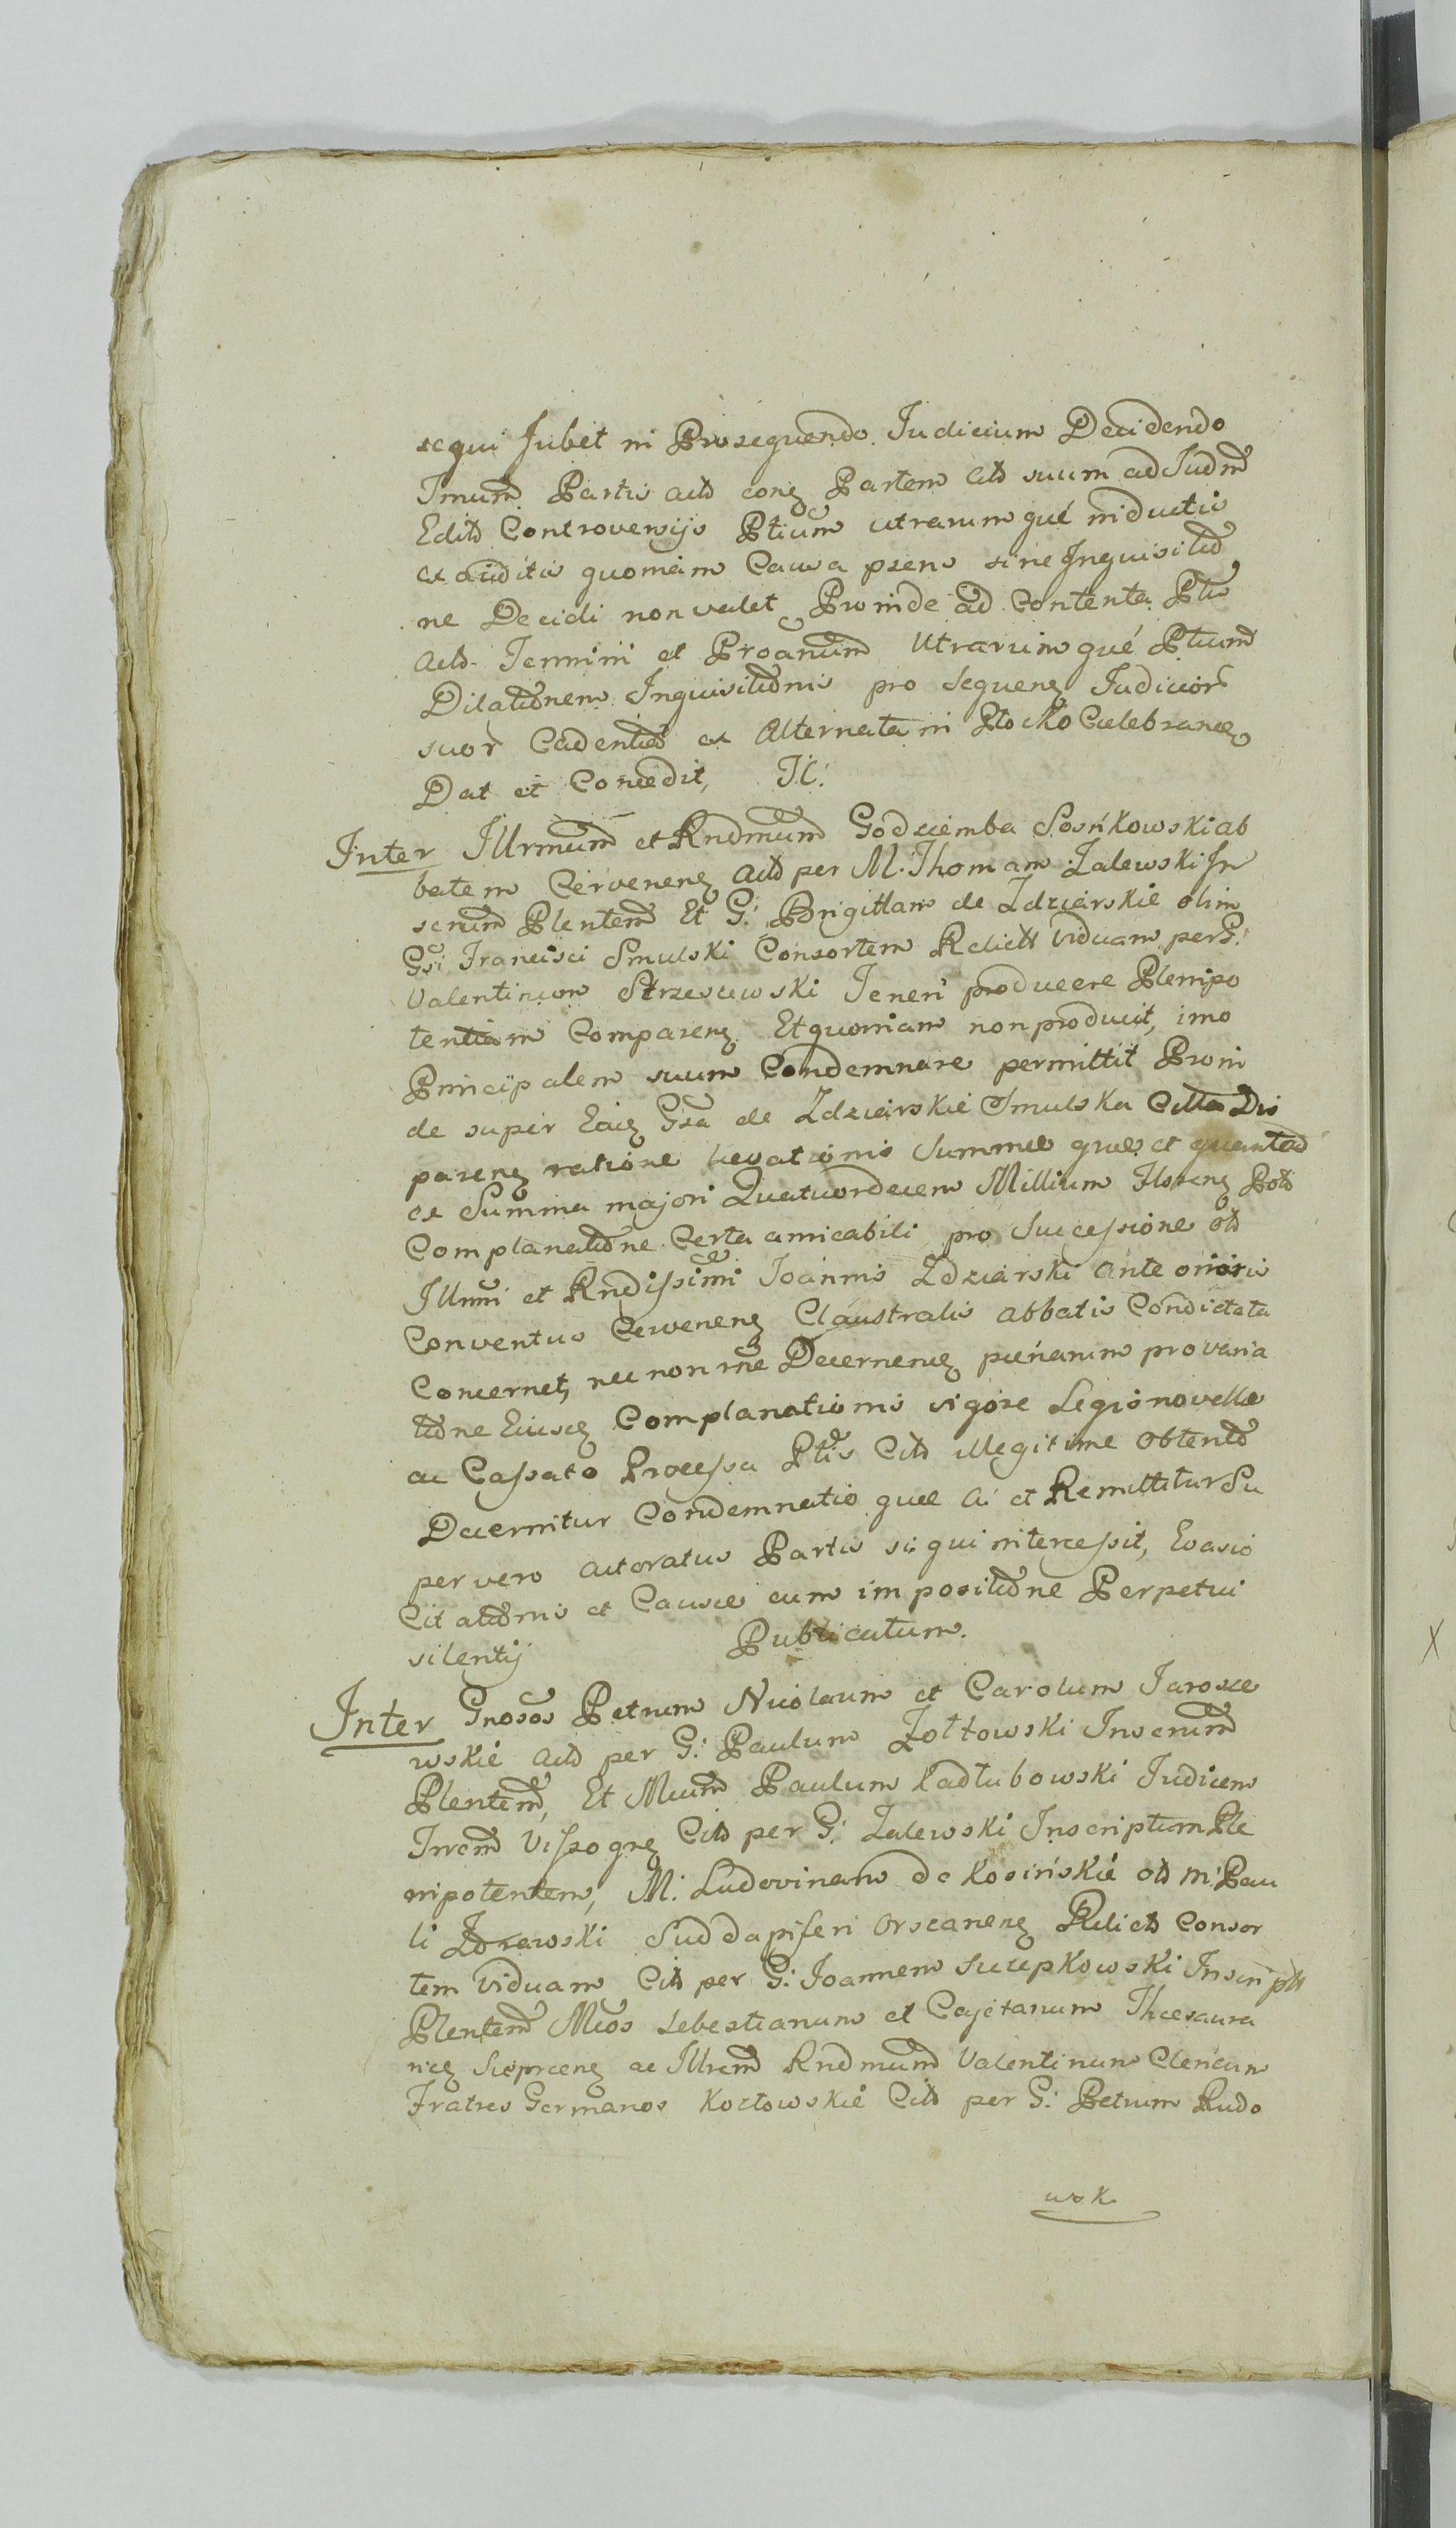 sequi Jubet in Prosequendo Judicium Decidendo
Imum Partis actd conq Partem Citd suum ad Judm
Editd Controversijs Ptium utrarumqué inductis
ex auditis quoniam Causa psens sine Inquisitiõ
ne Decidi non valet Proinde ad Contenta Ptis
Actd Termini et Proanum Utrarumqué Ptium
Dilatiõnem Inquisitiõnis pro Sequenq Judicior
suor Cadentiã ex Alternata in Plocko Celebranq
Dat et Concedit, J.C.
Inter Illrmum et Rndmum Godziemba Sosńkowski ab
batem Cervenenq Actd per M. Thomam Zalewski In
scrum Plentem Et G: Brigittam de Zdziarskie olim
Gsi Francisci Smulski Consortem Relictt Viduam per G:
Valentinum Strzeszewski Teneri producere Plenipo
tentiam Comparenq Et quoniam non producit, imo
Principalem suum Condemnare permittit Proin
de super Eaq Gsa de Zdziarskie Smulska Citta Dis
parenq ratione levationis Summæ quæ et quantã
ex Summa majori Quatuordecem Millium Florenq Pold
Complanatiõne Certa amicabili pro Successione old
Illmi et Rndissimi Joannis Zdziarski Anterioris
Conventus Cervenenq Claustralis Abbatis Condictata
Concernet, nec non rne Decernenq pœnarum pro varia
tiõne Eiusq Complanationis vigore Legis novellæ
ac Cassato Processu Ptis Citd illegitime Obtentõ
Decernitur Condemnatio quæ a: et Remittitur Su
per vero Actoratus Partis si qui intercessit, Evasio
Citatiõnis et Causæ cum impositiõne Perpetui
silentij Publicatum.
Inter Gnosos Petrum Nicolaum et Carolum Jarosze
wskie Actd per G: Paulum Zołtowski Inscrum
Plentem, Et Mcum Paulum Kadłubowski Judicem
Trrem Vissogrq Citd per G: Zalewski Inscriptum Ple
nipotentem, M: Ludovinam de Kosińskie old M: Pau
li Subdapiferi Orscanenq Relictd Consor
tem Viduam Citd per G: Joannem Szczepkowski Inscriptt
Plentem Mcos Sebestianum et Cajetanum Thesaura
riq Sieprcenq ac Illrem Rndmum Valentinum Clericum
Fratres Germanos Kozłowskie Citd per G: Petrum Rudo
wsk.